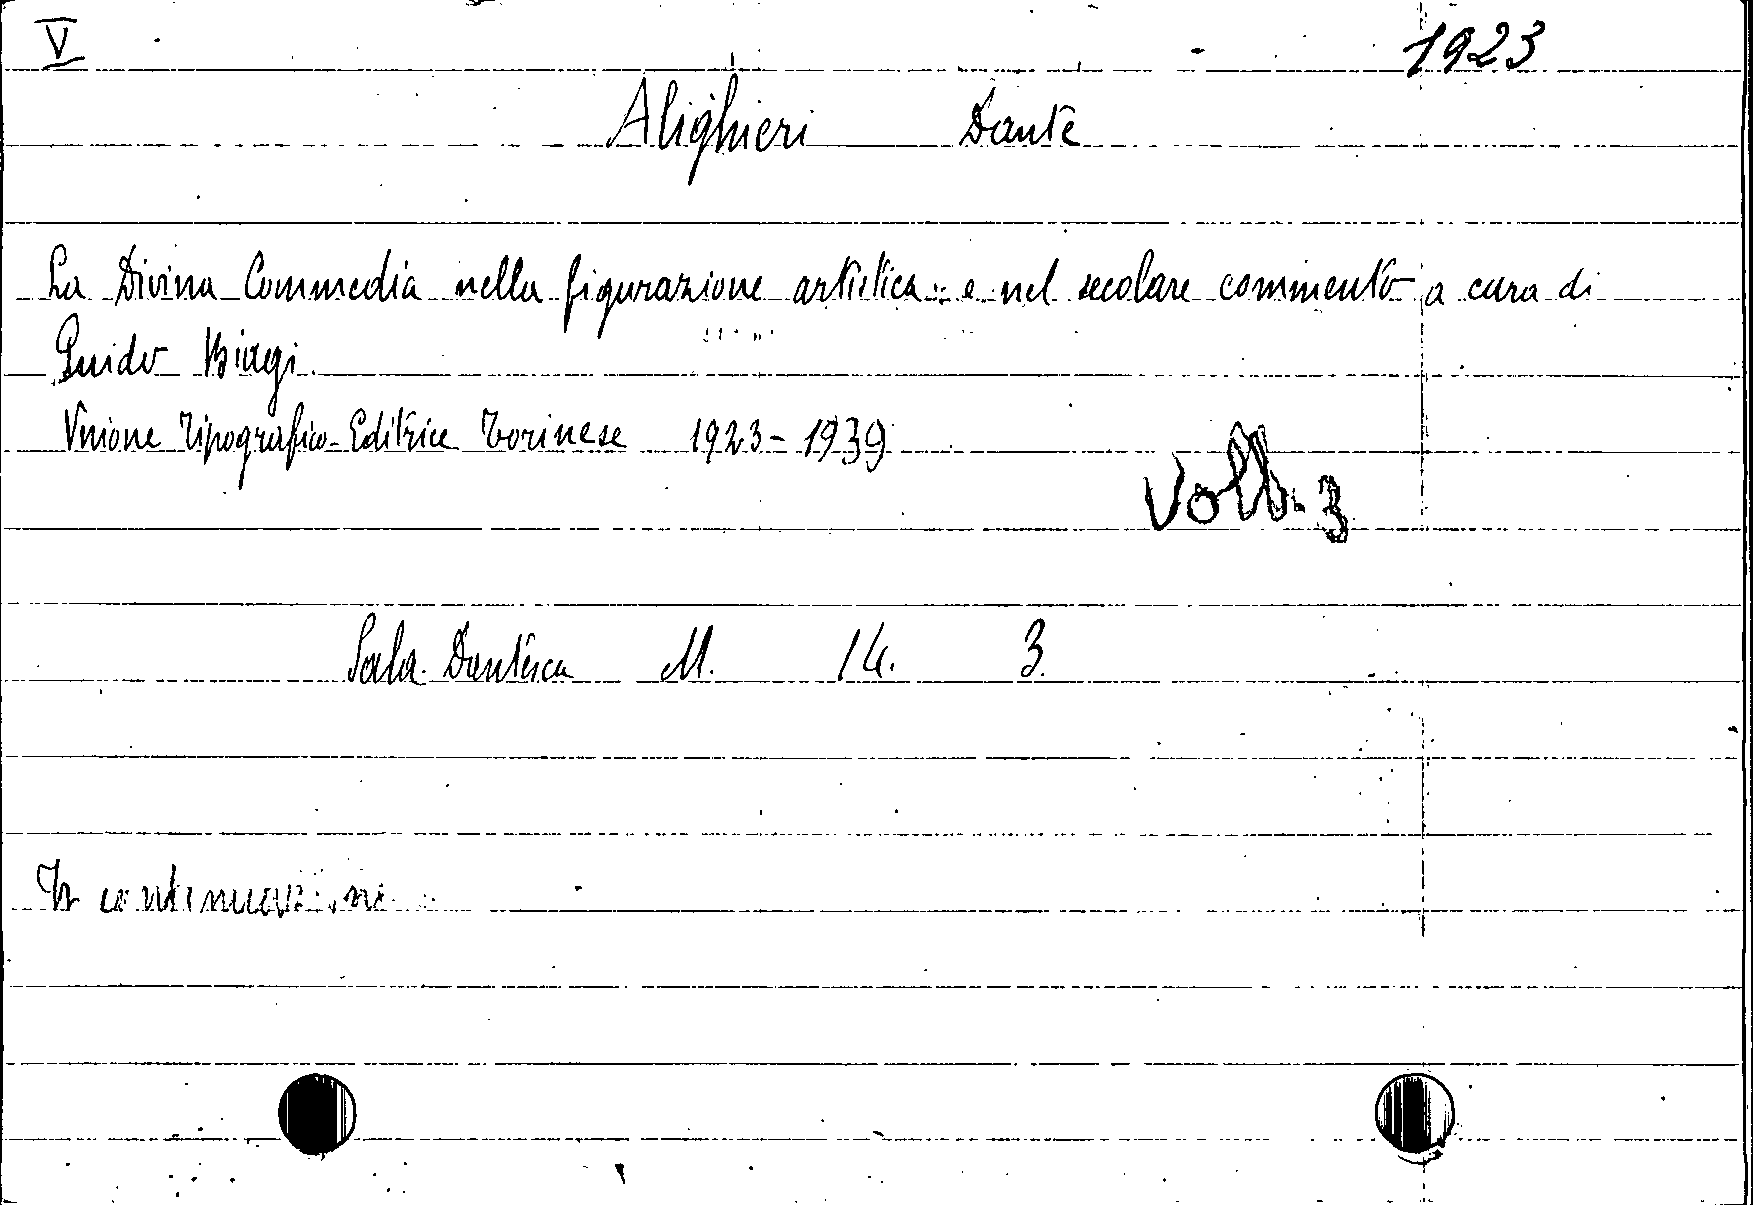 V 1923
Alighieri Dante
La Divina Commedia nella figurazione artistica e nel secolare commento a cura di
Guido Biagi.
Unione Tipografico-Editrice Torinese 1923-1939
Voll. 3
Sala Dantesca M. 14. 3.
In continuazione